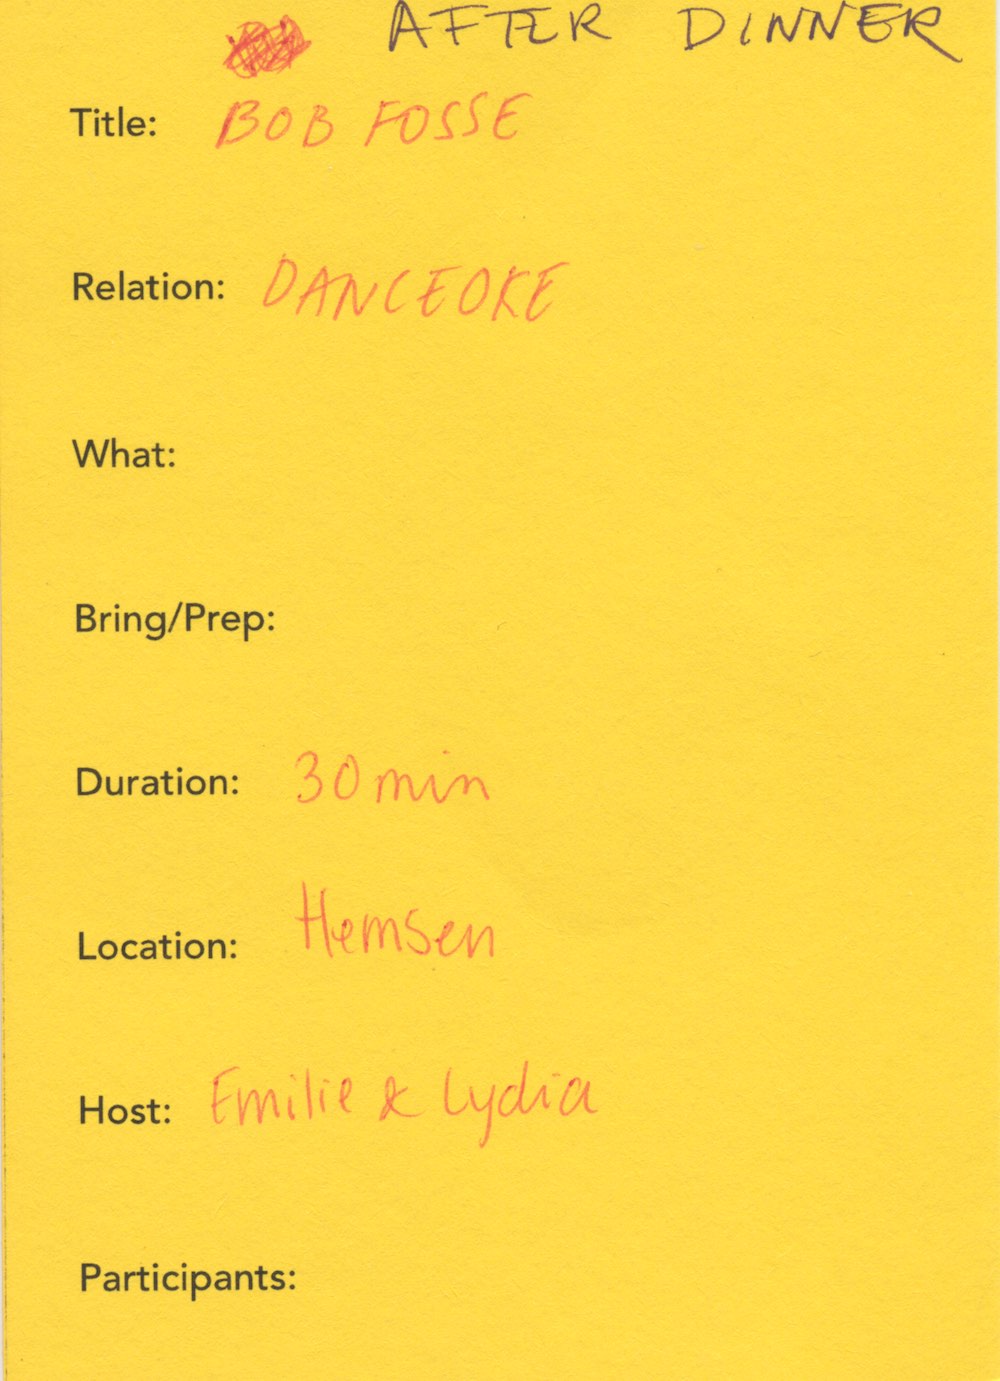 AFTER DINNER
Title: BOB FOSSE
Relation: DANCEOKE
What:
Bring/Prep:
Duration: 30 min
Location: Hemsen
Host: Emilie & Lydia
Participants: